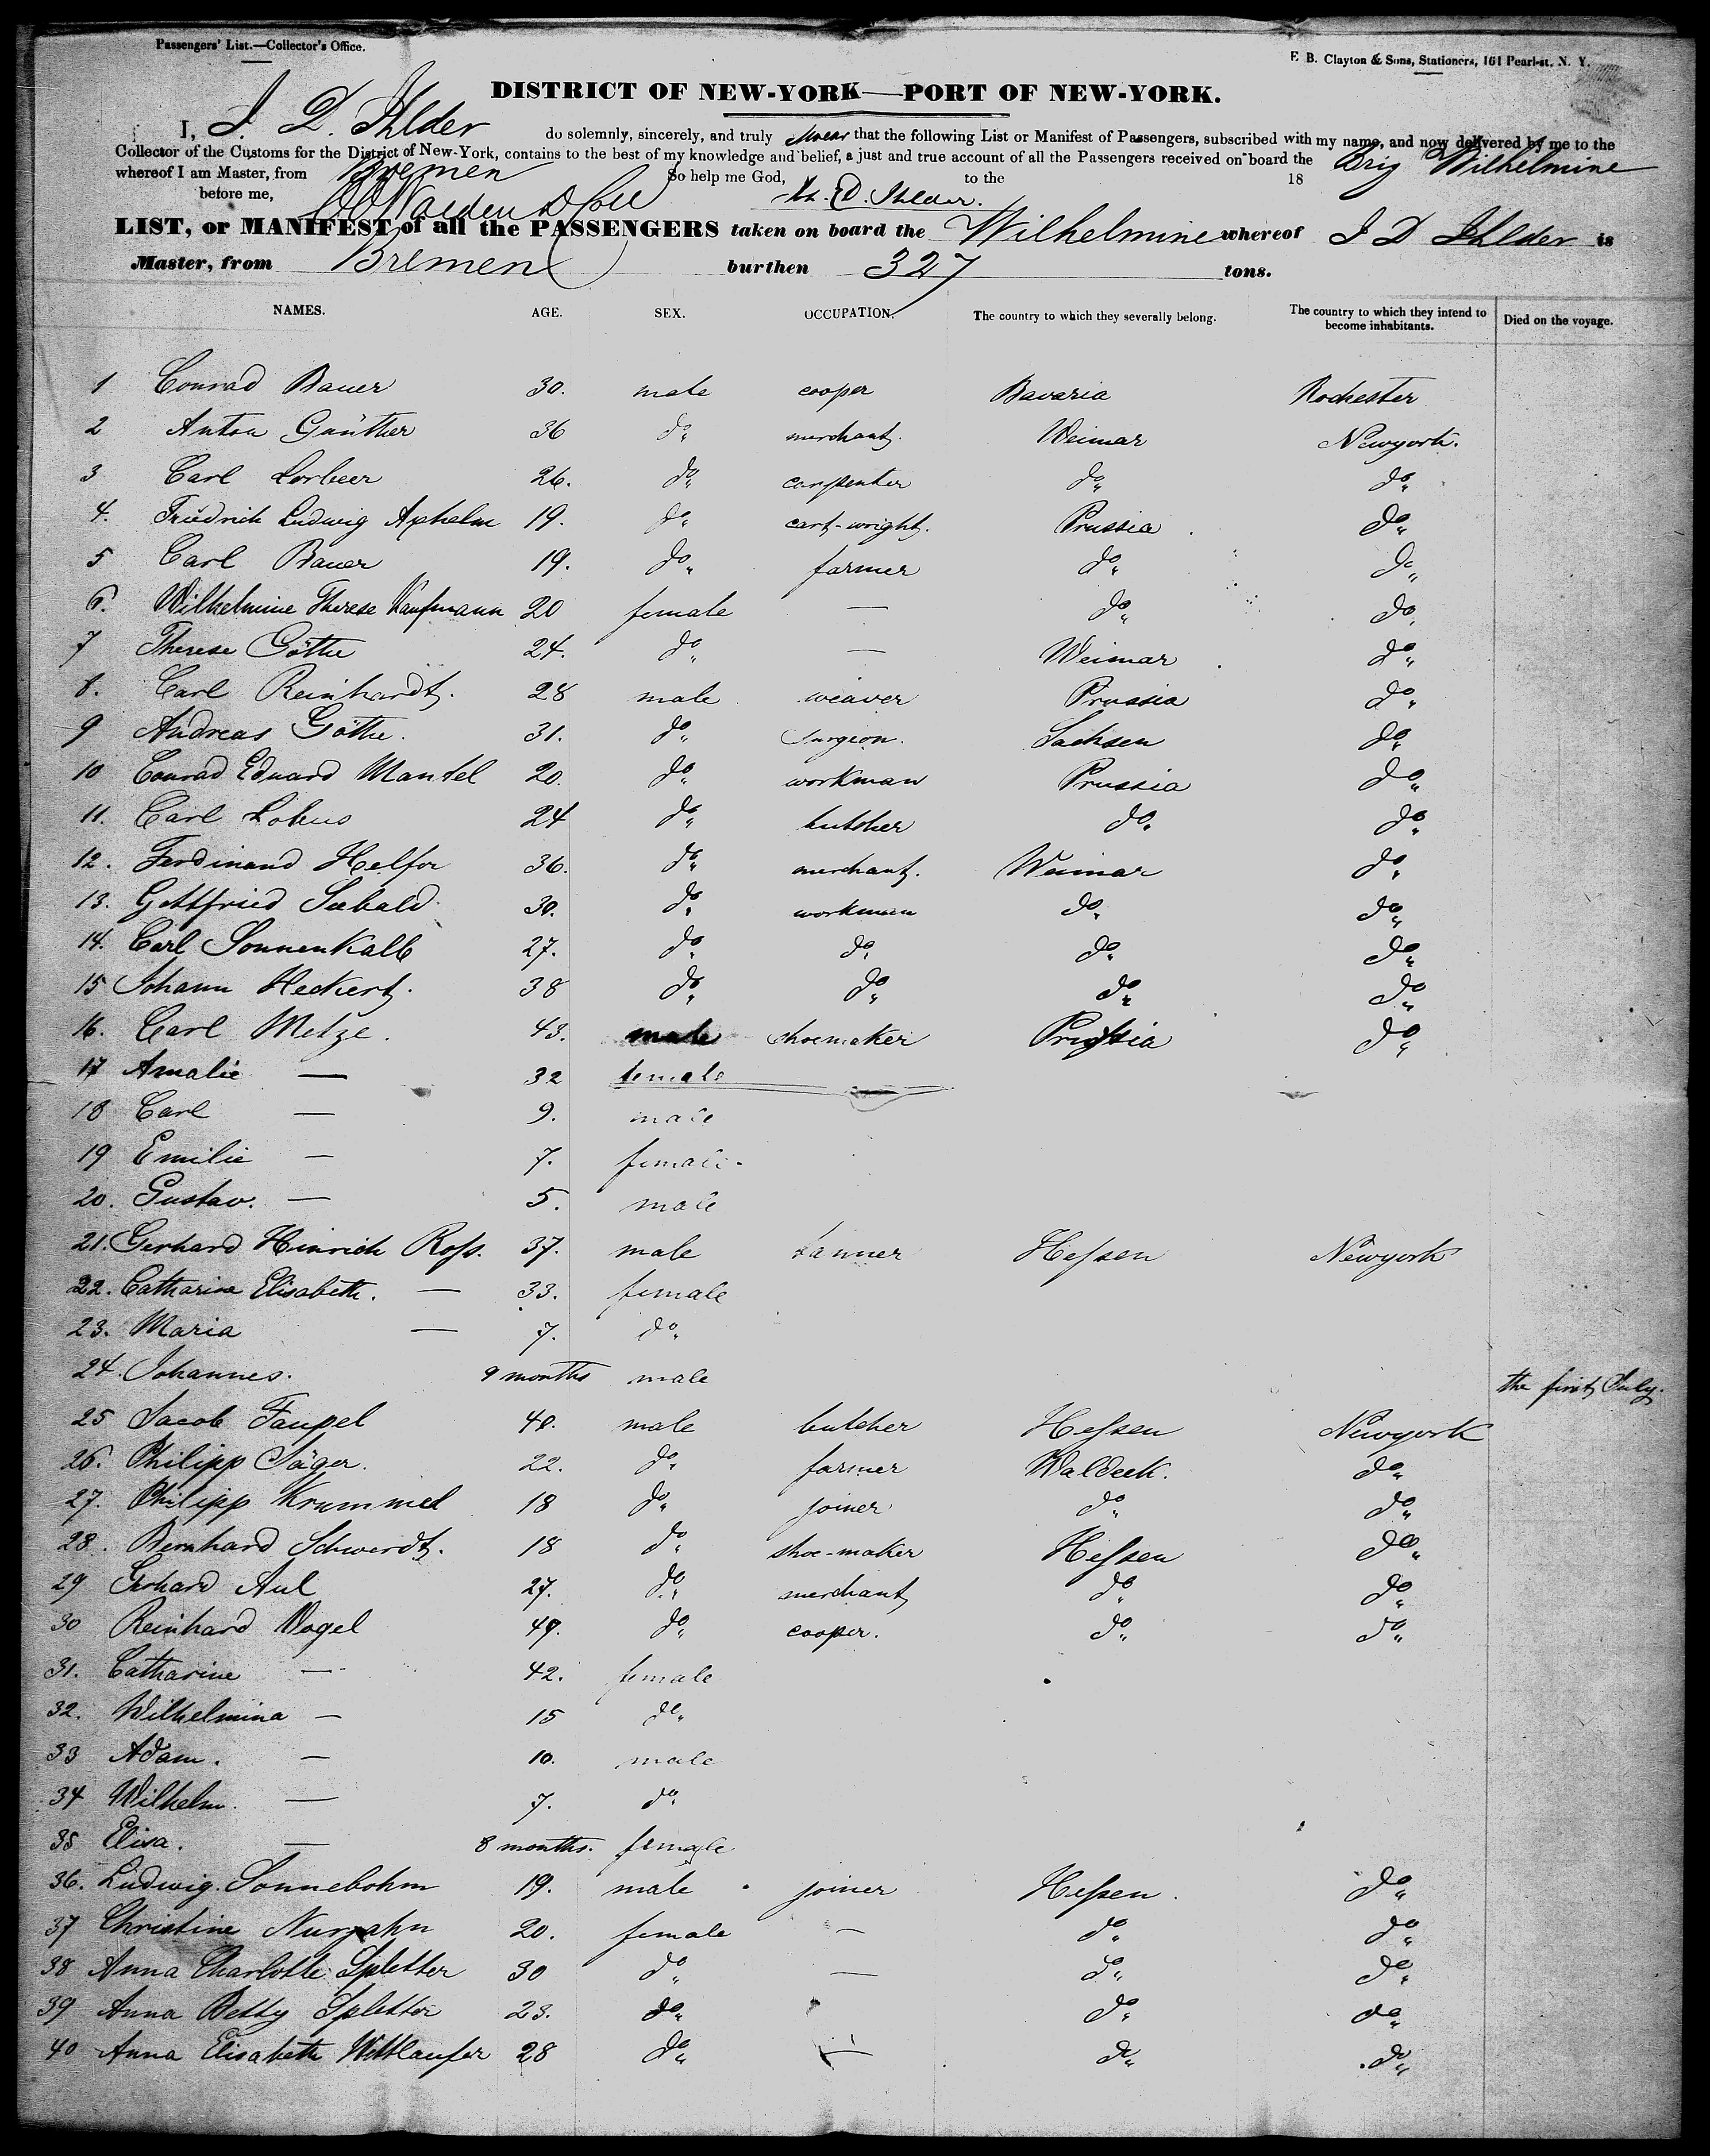 Passengers' List.—Collector's Office.
E. B. Clayton & Sons, Stationers, 161 Pearl-st. N. Y.
DISTRICT OF NEW-YORK—PORT OF NEW-YORK.
I, J. D. Ihlder do solemnly, sincerely, and truly swear that the following List or Manifest of Passengers, subscribed with my name, and now delivered by me to the
Collector of the Customs for the District of New-York, contains to the best of my knowledge and belief, a just and true account of all the Passengers received on board the Brig Wilhelmine
whereof I am Master, from Bremen So help me God, to the 18
before me, D. Ihlder.
LIST, or MANIFEST of all the PASSENGERS taken on board the Wilhelmine whereof J D Ihlder is
Master, from Bremen burthen 327 tons.
NAMES. AGE. SEX. OCCUPATION. The country to which they severally belong. The country to which they intend to become inhabitants. Died on the voyage.
1 Conrad Bauer 30. male cooper Bavaria Rochester
2 Anton Günther 36 do merchant. Weimar Newyork.
3 Carl Lorbeer 26. do carpenter do do
4. Friedrich Ludwig Aphelm 19. do cart-wright. Prussia do
5 Carl Bauer 19. do farmer do do
6. Wilhelmine Therese Kaufmann 20 female — do do
7 Therese Göthe 24. do — Weimar do
8. Carl Reinhardt. 28 male weaver Prussia do
9 Andreas Göthe. 31. do surgeon. Sachsen do
10 Conrad Eduard Mantel 20. do workman Prussia do
11. Carl Lobus 24 do butcher do do
12. Ferdinand Helfer 36. do merchant. Weimar do
13. Gottfried Seebald 30. do workman do do
14. Carl Sonnenkalb 27. do do do do
15 Johann Heckert. 38 do do do do
16. Carl Metze. 43. male shoemaker Prussia do
17 Amalie — 32 female
18 Carl — 9. male
19 Emilie — 7. female
20. Gustav. — 5. male
21. Gerhard Hinrich Roſs. 37. male tanner Heſsen Newyork
22. Catharine Elisabeth. — 33. female
23. Maria — 7. do
24. Johannes. 9 months male the first July.
25 Jacob Faupel 40. male butcher Heſsen Newyork
26. Philipp Jäger. 22. do farmer Waldeck. do
27. Philipp Krummel 18 do joiner do do
28. Bernhard Schwerdt. 18 do shoe-maker Heſsen do
29 Gerhard Aul 27. do merchant do do
30 Reinhard Vogel 49. do cooper. do do
31. Catharine — 42. female
32. Wilhelmina — 15 do
33 Adam. — 10. male
34 Wilhelm. — 7. do
35 Elisa. — 8 months. female
36. Ludwig Sonnebohm 19. male joiner Heſsen. do
37 Christine Nurjahn 20. female — do do
38 Anna Charlotte Spletter 30 do — do do
39 Anna Betty Spletter 23. do do do
40 Anna Elisabeth Wittlaufer 28 do — do do